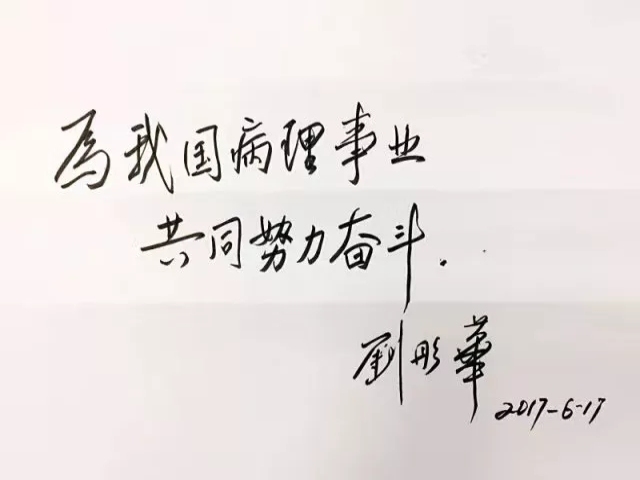 為我国病理事业
共同努力奋斗.
劉彤華
2017-6-17